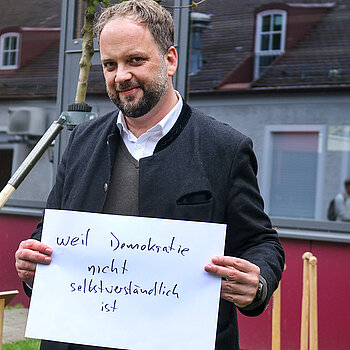 weil Demokratie
nicht
selbstverständlich
ist